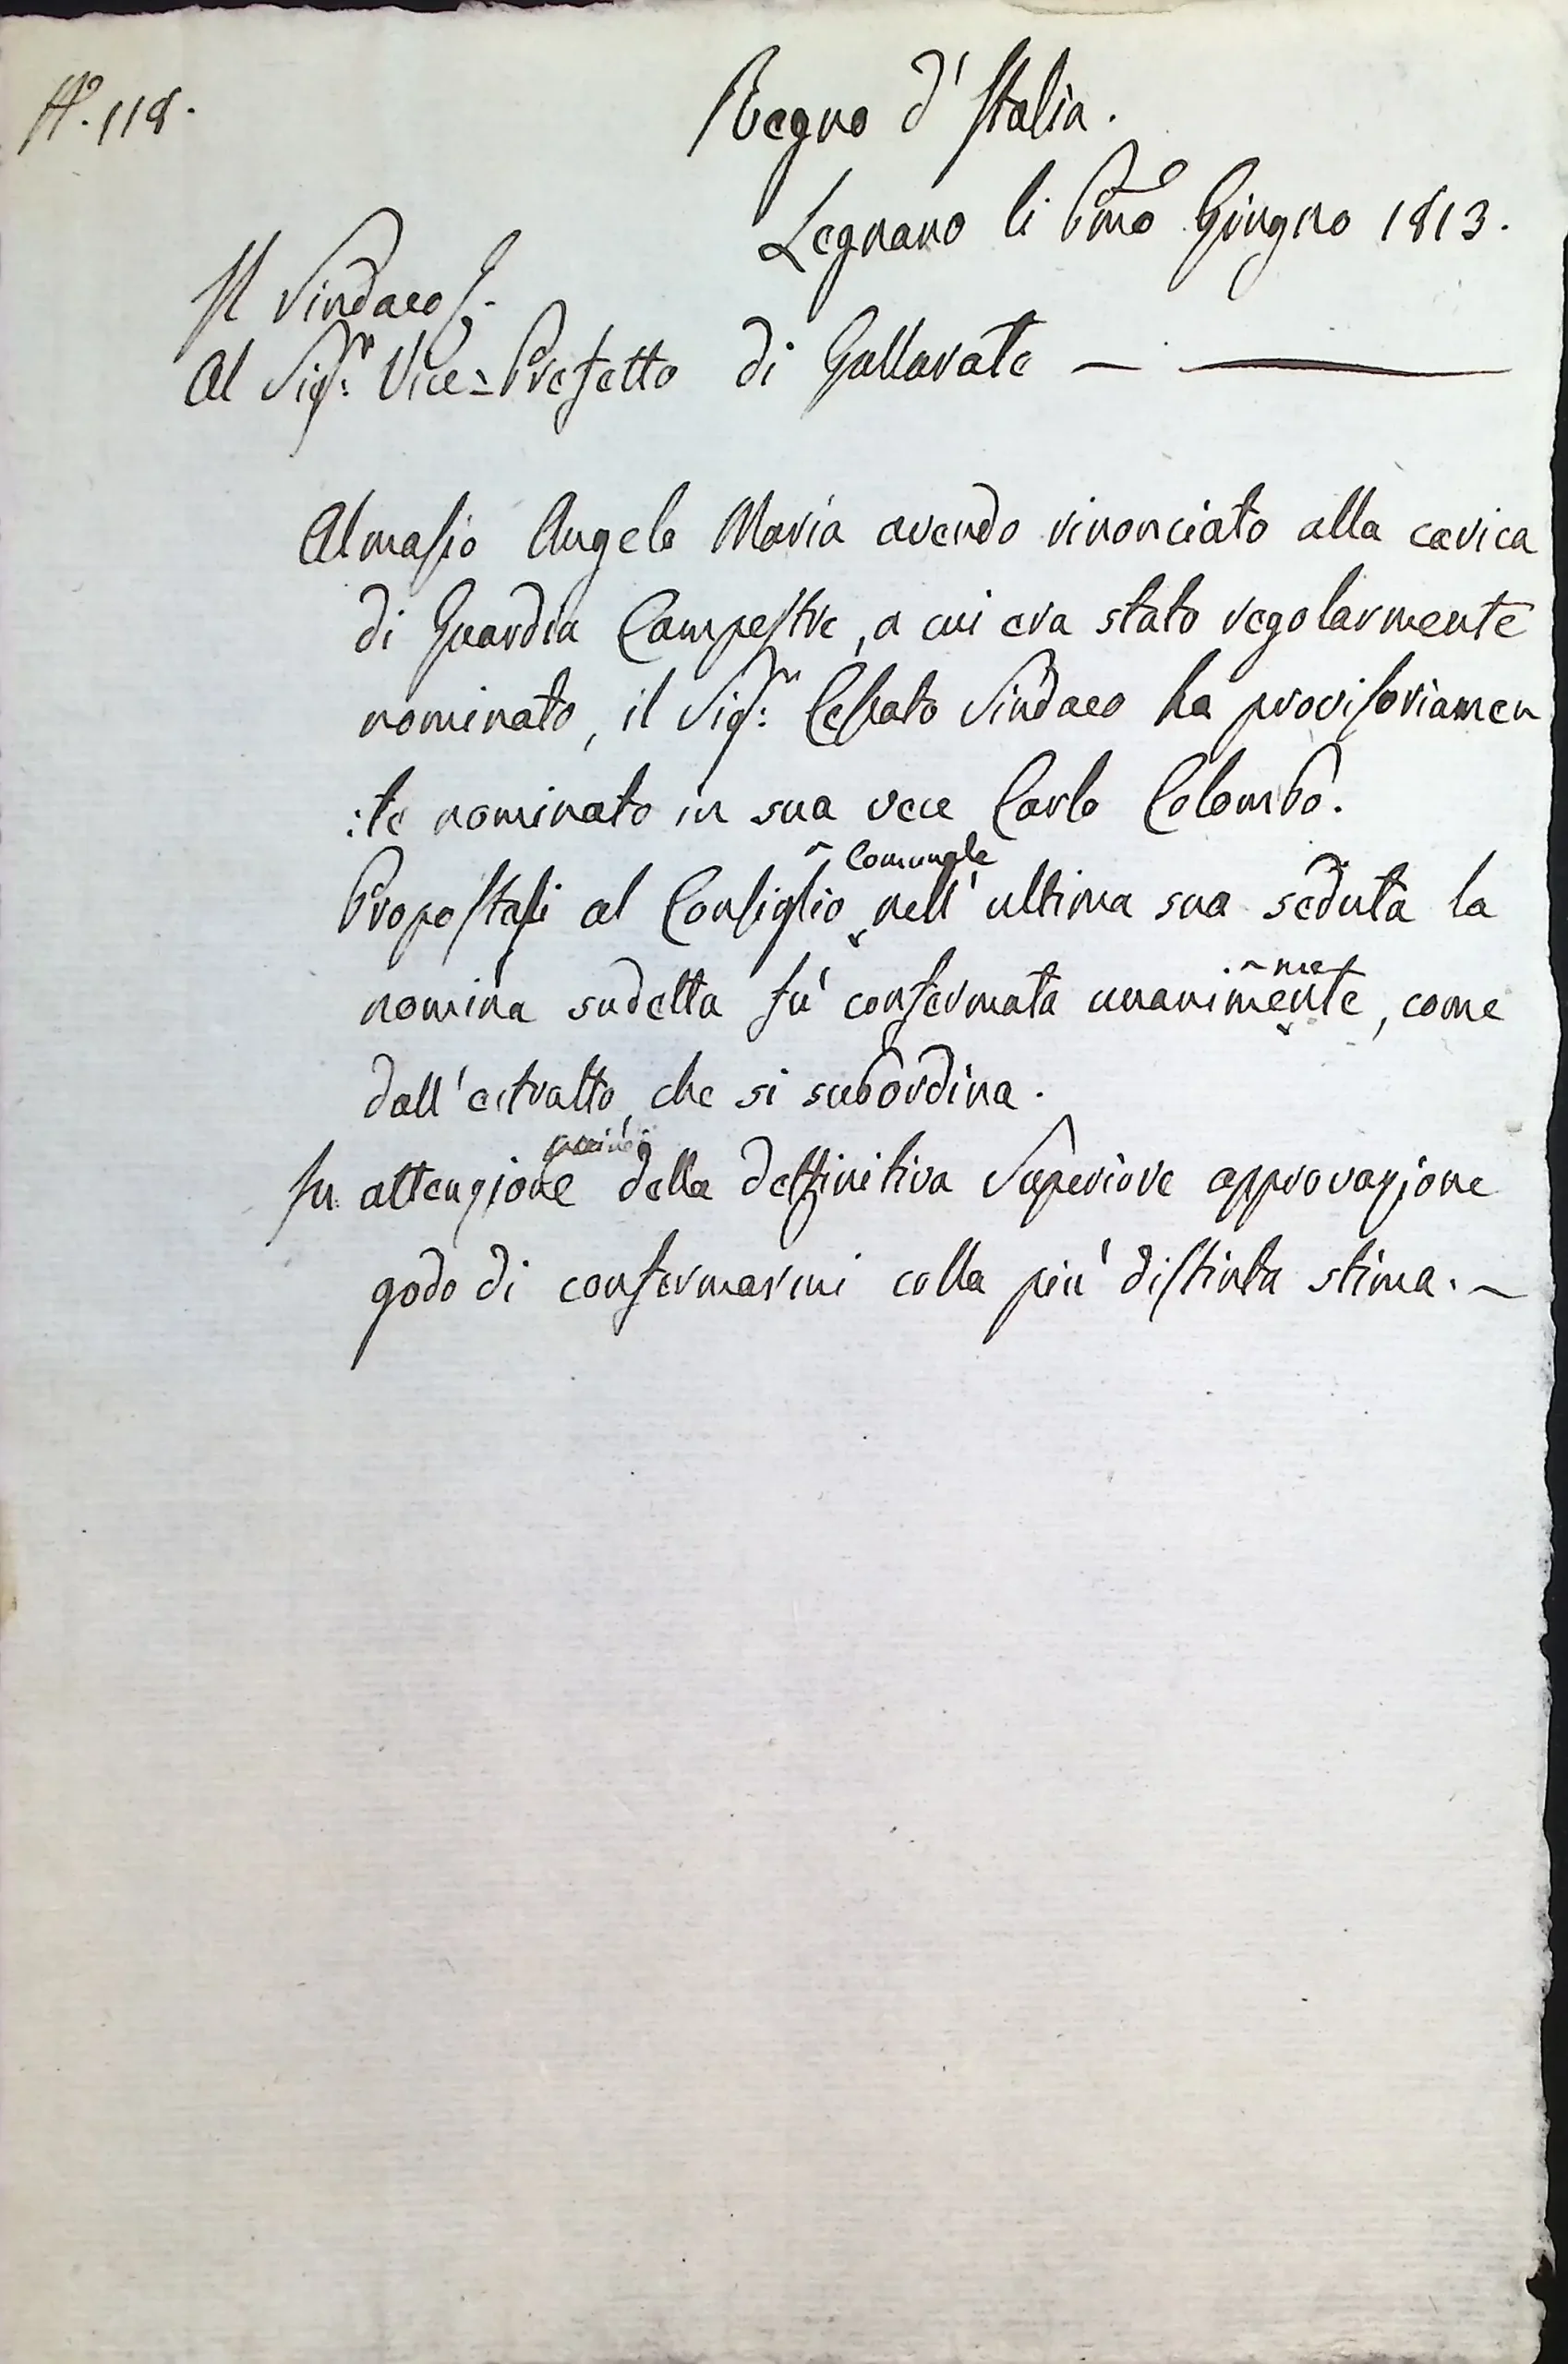 N.º 118.
Regno d'Italia.
Legnano li Pmo Giugno 1813.
Il Sindaco
Al Sigr: Vice=Prefetto di Gallarate —
Almasio Angelo Maria avendo rinonciato alla carica
di Guardia Campestre, a cui era stato regolarmente
nominato, il Sigr: Cessato Sindaco ha provisoriamen
:te nominato in sua vece Carlo Colombo.
Comunale
Propostasi al Consiglio nell'ultima sua seduta la
me
nomina sudetta fù confermata unanimente, come
dall'estratto, che si subordina.
In attenzione della deffinitiva Superiore approvazione
godo di confermarmi colla più distinta stima. ~